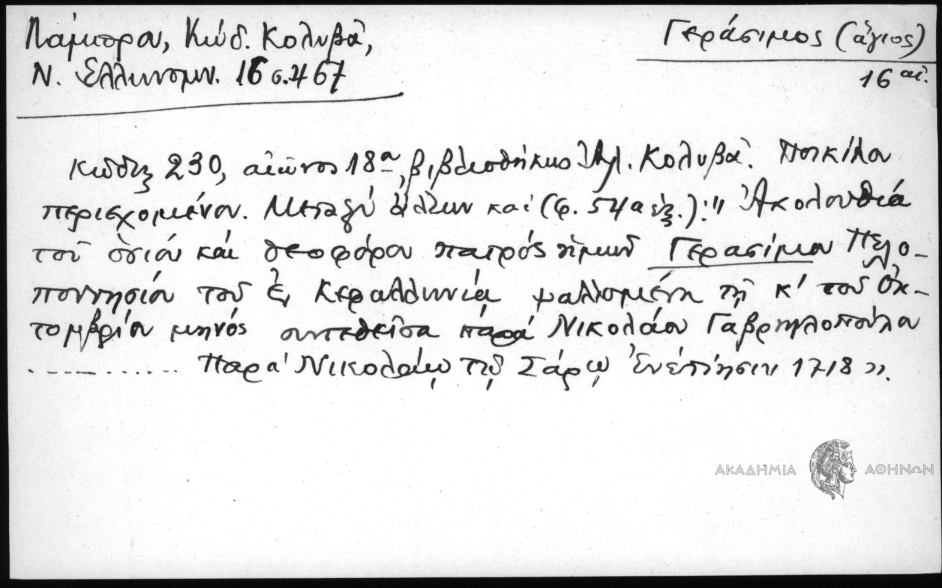 Λάμπρου, Κώδ. Κολυβᾶ,
Ν. Ἑλληνομν. 16 σ. 467
Γεράσιμος (ἅγιος)
16 αἰ.
Κώδιξ 230, αἰῶνος 18ου, βιβλιοθήκης Ἀλ. Κολυβᾶ. Ποικίλου
περιεχομένου. Μεταξὺ ἄλλων καὶ (φ. 54α ἑξ.): "Ἀκολουθία
τοῦ ὁσίου καὶ θεοφόρου πατρὸς ἡμῶν Γερασίμου Πελο-
ποννησίου τοῦ ἐν Κεφαλληνίᾳ ψαλλομένη τῇ κ' τοῦ Ὀκ-
τωμβρίου μηνός συντεθεῖσα παρὰ Νικολάου Γαβριηλοπούλου
.............. Παρὰ Νικολάῳ τῷ Σάρῳ Ἐνετίησιν 1718».
ΑΚΑΔΗΜΙΑ ΑΘΗΝΩΝ